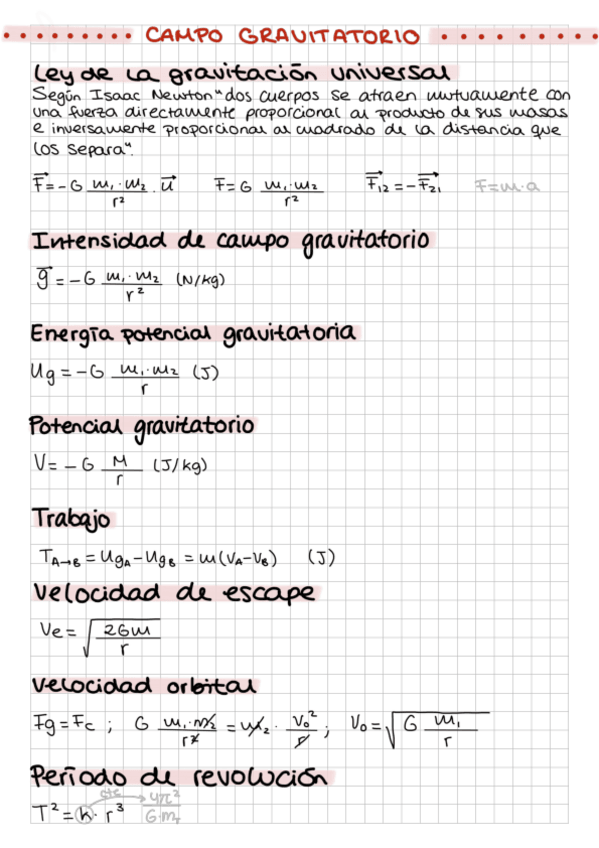 CAMPO GRAVITATORIO
Ley de la gravitación universal
Según Isaac Newton "dos cuerpos se atraen mutuamente con
una fuerza directamente proporcional al producto de sus masas
e inversamente proporcional al cuadrado de la distancia que
los separa".
F⃗ = -G m₁·m₂/r² · u⃗ F = G m₁·m₂/r² F⃗₁₂ = -F⃗₂₁ F=m·a
Intensidad de campo gravitatorio
g⃗ = -G m₁·m₂/r² (N/kg)
Energía potencial gravitatoria
Ug = -G m₁·m₂/r (J)
Potencial gravitatorio
V = -G M/r (J/kg)
Trabajo
T A→B = UgA - UgB = m(VA-VB) (J)
Velocidad de escape
Ve = √(2Gm/r)
Velocidad orbital
Fg = Fc ; G m₁·m₂/r² = m₂ · v₀²/r ; V₀ = √(G m₁/r)
Período de revolución
cte
T² = k · r³ 4π²/G·mT